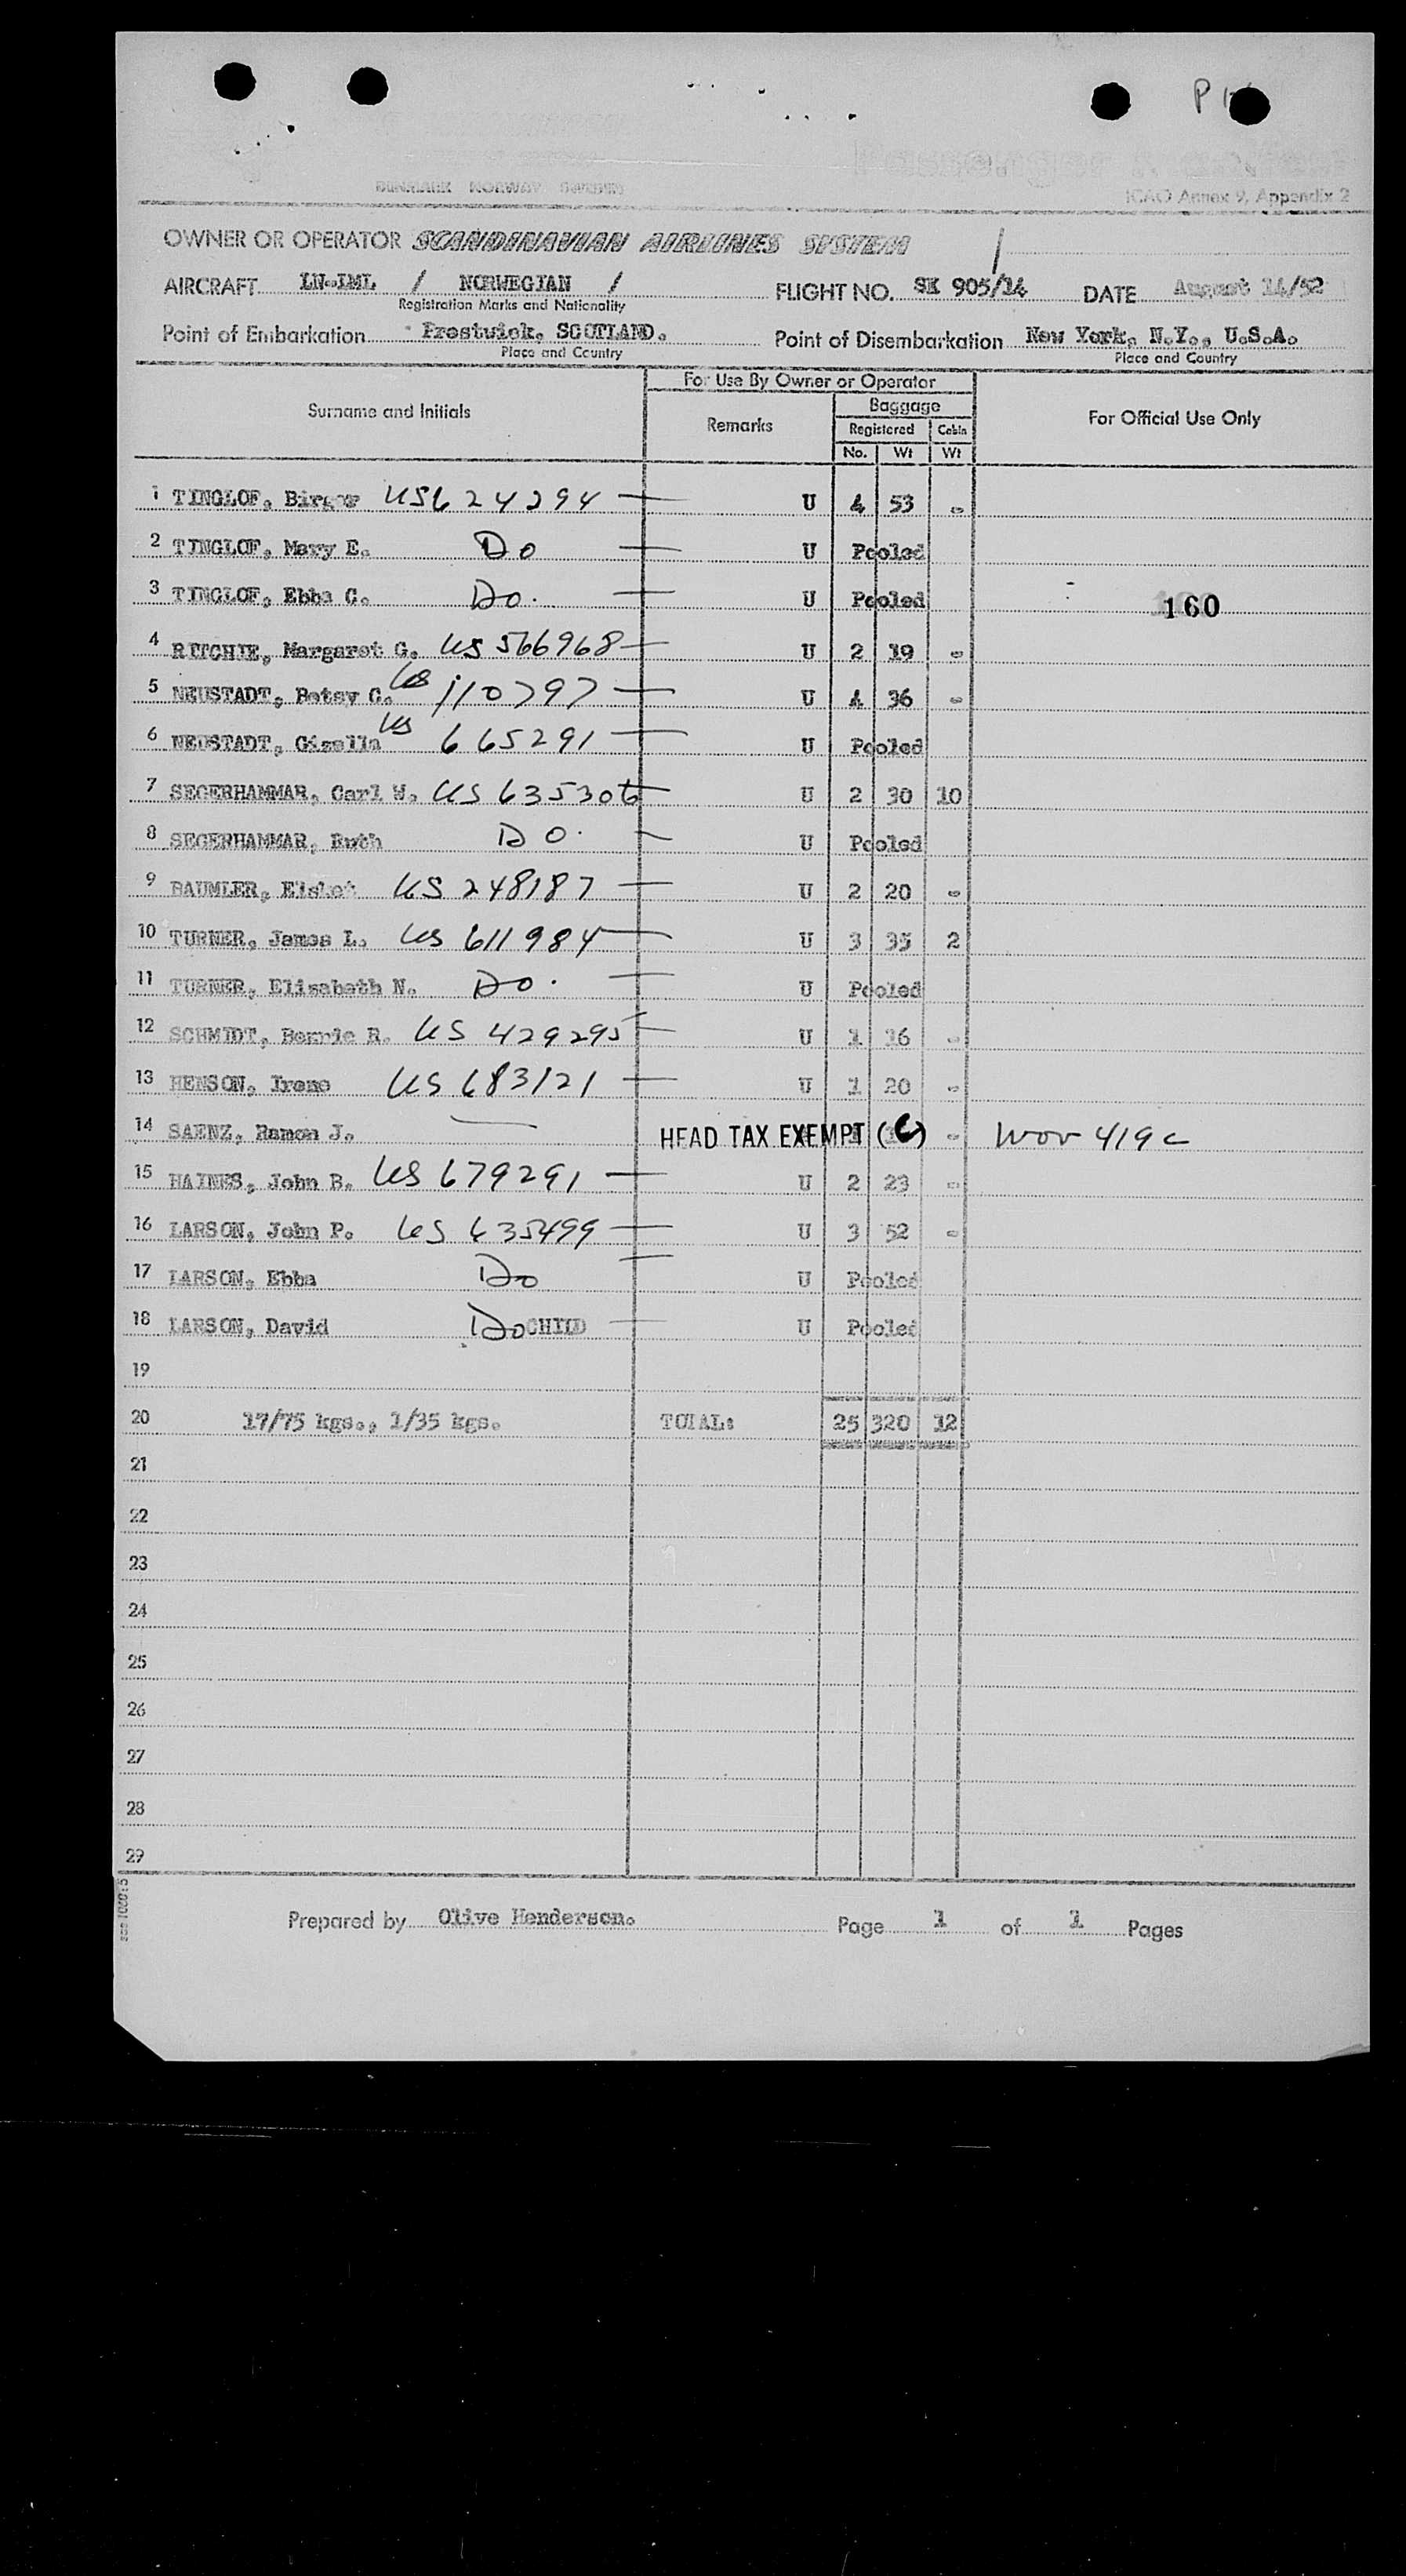 P
DENMARK NORWAY SWEDEN
ICAO Annex 9, Appendix 2
OWNER OR OPERATOR SCANDINAVIAN AIRLINES SYSTEM
AIRCRAFT LN-IML / NORWEGIAN / FLIGHT NO. SK 905/14 DATE August 14/52
Registration Marks and Nationality
Point of Embarkation Prestwick, SCOTLAND. Point of Disembarkation New York, N.Y., U.S.A.
Place and Country Place and Country
For Use By Owner or Operator
Surname and Initials Remarks Baggage For Official Use Only
Registered Cabin
No. Wt Wt
1 TINGLOF, Birger US624294 — U 4 53 -
2 TINGLOF, Mary E. Do — U Pooled
3 TINGLOF, Ebba C. Do. — U Pooled 160
4 RITCHIE, Margaret G. US 566968 — U 2 19 -
5 NEUSTADT, Betsy C. US 110797 — U 4 36 -
6 NEUSTADT, Gisella US 665291 — U Pooled
7 SEGERHAMMAR, Carl W. US 635306 — U 2 30 10
8 SEGERHAMMAR, Ruth DO. — U Pooled
9 BAUMLER, US 248187 — U 2 20 -
10 TURNER, James L. US 611984 — U 3 35 2
11 TURNER, Elisabeth N. Do. — U Pooled
12 SCHMIDT, R. US 429295 — U 1 16 -
13 HENSON, Irene US 683121 — U 1 20 -
14 SAENZ, Ramon J. — HEAD TAX EXEMPT (C) - Wor 419c
15 HAINES, John B. US 679291 — U 2 23 -
16 LARSON, John P. US 635499 — U 3 52 -
17 LARSON, Ebba Do — U Pooled
18 LARSON, David Do CHILD — U Pooled
19
20 17/75 kgs., 1/35 kgs. TOTAL: 25 320 12
21
22
23
24
25
26
27
28
29
Prepared by Olive Henderson. Page 1 of 1 Pages